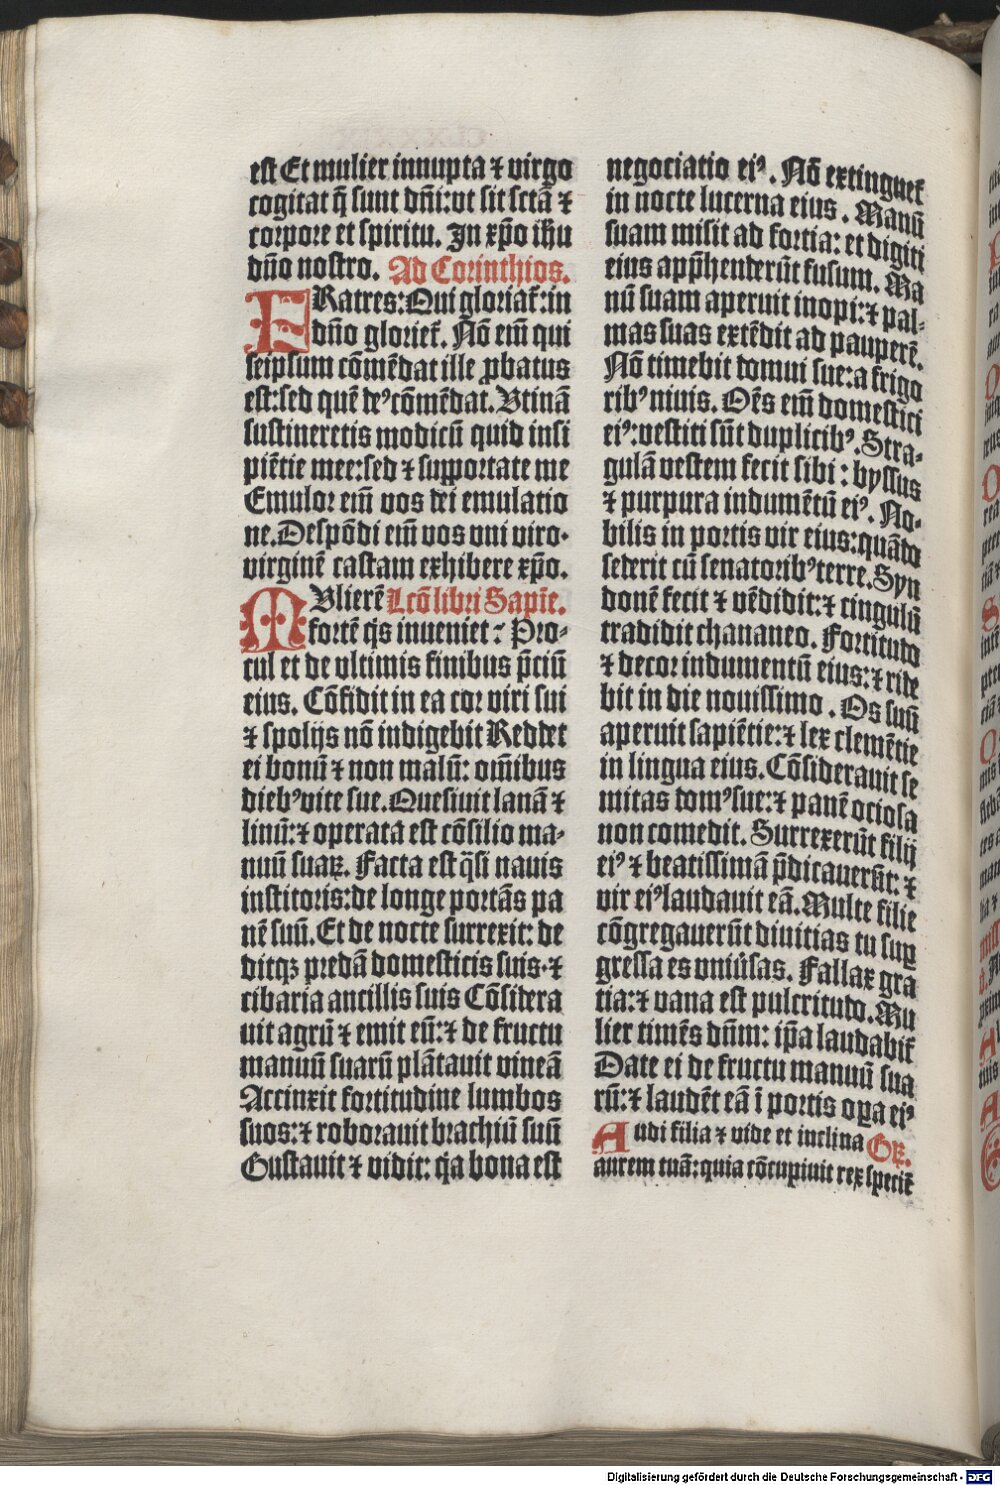 est Et mulier innupta ⁊ virgo
cogitat q̄ sunt dn̄i: vt sit sctā ⁊
corpore et spiritu. In xp̄o ih̄u
dn̄o nostro. Ad Corinthios.
FRatres: Qui gloriat̄: in
dn̄o gloriet̄. Nō em̄ qui
seipsum cōmēdat ille ꝓbatus
est: sed quē deꝰ cōmēdat. Vtinā
sustineretis modicū quid insi
piētie mee: sed ⁊ supportate me
Emulor em̄ vos dei emulatio
ne. Despōdi em̄ vos vni viro.
virginē castam exhibere xp̄o.
MVlierē Lcō libri Sapīe.
fortē q̄s inueniet: Pro-
cul et de vltimis finibus p̄ciū
eius. Cōfidit in ea cor viri sui
⁊ spolijs nō indigebit Reddet
ei bonū ⁊ non malū: om̄ibus
diebꝰ vite sue. Quesiuit lanā ⁊
linū: ⁊ operata est cōsilio ma-
nuū suaꝝ. Facta est q̄si nauis
institoris: de longe portās pa
nē suū. Et de nocte surrexit: de
ditqꝫ predā domesticis suis. ⁊
cibaria ancillis suis Cōsidera
uit agrū ⁊ emit eū: ⁊ de fructu
manuū suarū plātauit vineā
Accinxit fortitudine lumbos
suos: ⁊ roborauit brachiū suū
Gustauit ⁊ vidit: q̄a bona est
negociatio eiꝰ. Nō extinguet̄
in nocte lucerna eius. Manū
suam misit ad fortia: et digiti
eius app̄henderūt fusum. Ma
nū suam aperuit inopi: ⁊ pal-
mas suas extēdit ad pauperē.
Nō timebit domui sue: a frigo
ribꝰ niuis. Oēs em̄ domestici
eiꝰ: vestiti sūt duplicibꝰ. Stra-
gulā vestem fecit sibi: byssus
⁊ purpura indumētū eiꝰ. No-
bilis in portis vir eius: quādo
sederit cū senatoribꝰ terre. Syn
donē fecit ⁊ vēdidit: ⁊ cingulū
tradidit chananeo. Fortitudo
⁊ decor indumentū eius: ⁊ ride
bit in die nouissimo. Os suū
aperuit sapiētie: ⁊ lex clemētie
in lingua eius. Cōsiderauit se
mitas domꝰ sue: ⁊ panē ociosa
non comedit. Surrexerūt filij
eiꝰ ⁊ beatissimā p̄dicauerūt: ⁊
vir eiꝰ laudauit eā. Multe filie
cōgregauerūt diuitias tu suꝑ
gressa es vniūsas. Fallax gra
tia: ⁊ vana est pulcritudo. Mu
lier timēs dn̄m: ip̄a laudabit̄
Date ei de fructu manuū sua
rū: ⁊ laudēt eā ī portis oꝑa eiꝰ
Audi filia ⁊ vide et inclina Gꝝ.
aurem tuā: quia cōcupiuit rex speciē
Digitalisierung gefördert durch die Deutsche Forschungsgemeinschaft - DFG